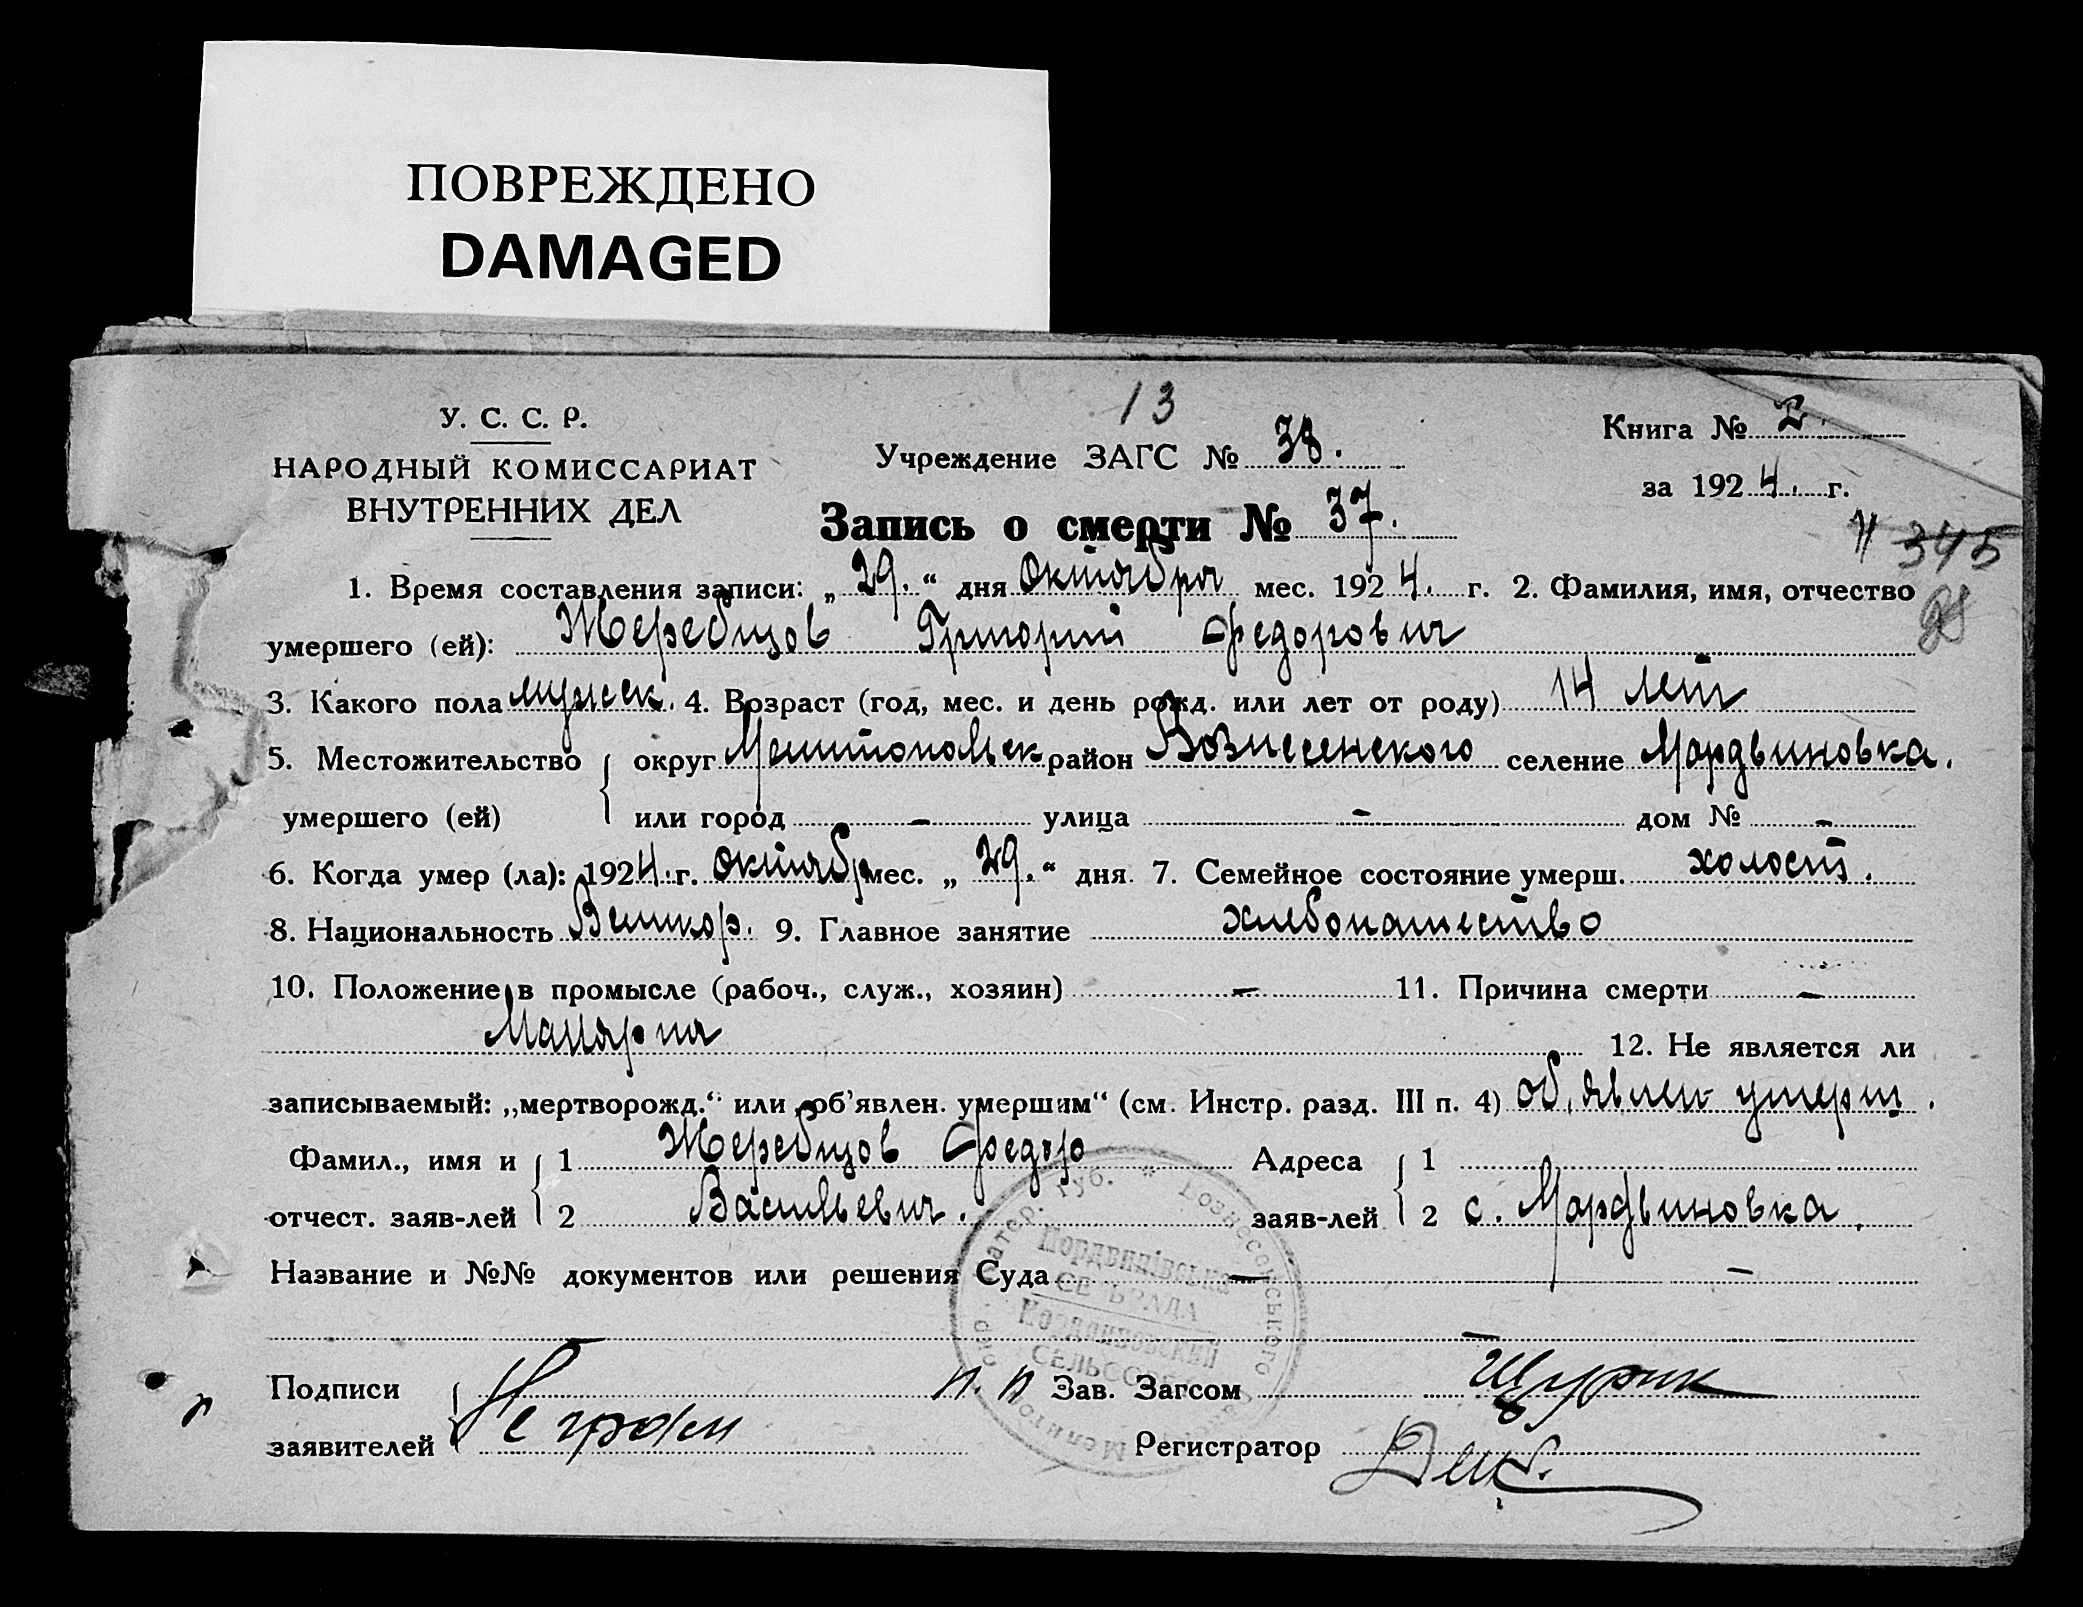 ПОВРЕЖДЕНО
DAMAGED
13
У. С. С. Р.
НАРОДНЫЙ КОМИССАРИАТ
ВНУТРЕННИХ ДЕЛ
Учреждение ЗАГС № 38.
Книга № 2
за 1924. г.
Запись о смерти № 37.
345
28
1. Время составления записи: „29.“ дня Октября мес. 1924. г. 2. Фамилия, имя, отчество
умершего (ей): Жеребцов Григорий Федорович
3. Какого пола мужеск. 4. Возраст (год, мес. и день рожд. или лет от роду) 14 лет
5. Местожительство { округ Мелитопольск район Вознесенского селение Мордвиновка.
умершего (ей) или город - улица - дом № -
6. Когда умер (ла): 1924. г. октябр мес. „29.“ дня. 7. Семейное состояние умерш. холост.
8. Национальность Великор. 9. Главное занятие хлебопашество
10. Положение в промысле (рабоч., служ., хозяин) - 11. Причина смерти -
Малярия 12. Не является ли
записываемый: „мертворожд.“ или „об'явлен. умершим“ (см. Инстр. разд. III п. 4) об,явлен умерш.
Фамил., имя и { 1 Жеребцов Федор Адреса { 1
отчест. заяв-лей 2 Васильевич. заяв-лей 2 с. Мордвиновка.
Название и №№ документов или решения Суда - -
-
Подписи { Неграм н. п Зав. Загсом Щурик
заявителей Регистратор
СЕЛЬРАДА
СЕЛЬСОВЕТ